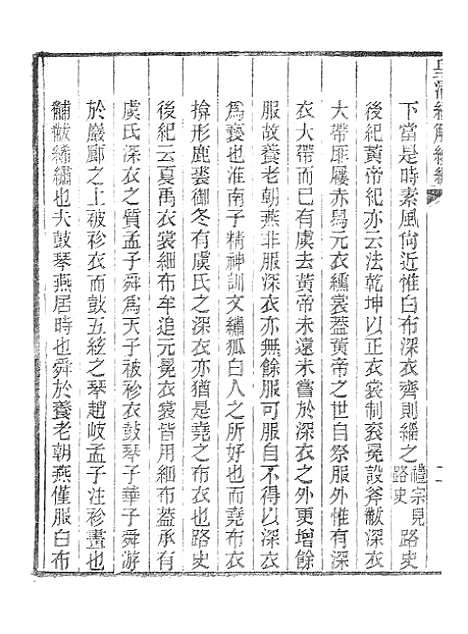 皇清經解續編
下當是時素風尙近惟白布深衣齊則緇之禮宗見路史路史
後紀黃帝紀亦云法乾坤以正衣裳制袞冕設斧黻深衣
大帶屝屨赤舄元衣纁裳葢黃帝之世自祭服外惟有深
衣大帶而已有虞去黃帝未遠未嘗於深衣之外更增餘
服故養老朝燕非服深衣亦無餘服可服自不得以深衣
爲褻也淮南子精神訓文繡狐白人之所好也而堯布衣
揜形鹿裘御冬有虞氏之深衣亦猶是堯之布衣也路史
後紀云夏禹衣裳細布牟追元冕衣裳皆用細布葢承有
虞氏深衣之質孟子舜爲天子被袗衣鼓琴子華子舜游
於巖廊之上被袗衣而鼓五絃之琴趙岐孟子注袗畫也
黼黻絺繡也夫鼓琴燕居時也舜於養老朝燕僅服白布